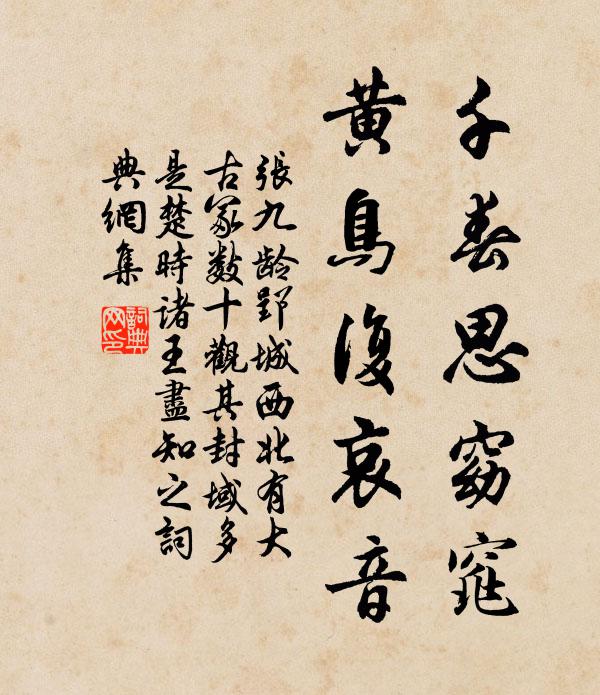 千春思窈窕
黄鳥復哀音
張九龄郢城西北有大
古冢数十觀其封域多
是楚時诸王盡知之詞
典網集
詞典
网印